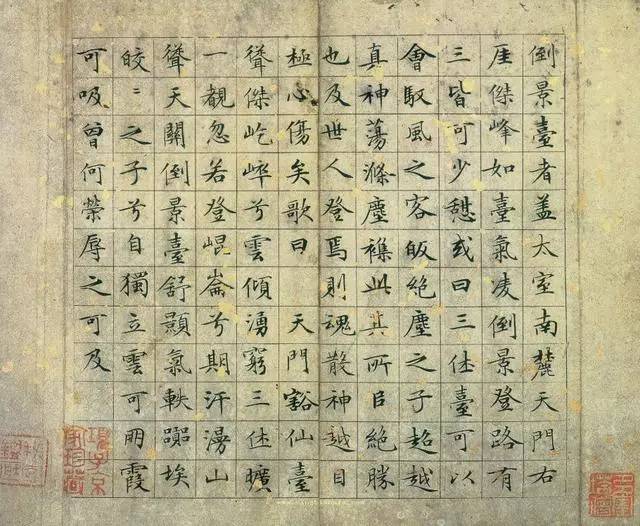 倒景臺者盖太室南麓天門右
厓傑峰如臺氣凌倒景登路有
三皆可少憇或曰三休臺可以
會馭風之客皈絶塵之子超越
真神蕩滌塵襟此其所㠯絶勝
也及世人登焉則魂散神越目
極心傷矣歌曰 天門豁仙臺
聳傑屹崒兮雲傾湧窮三休曠
一覩忽若登崐崙兮期汗漫山
聳天關倒景臺舒顥氣軼埃
皎〻之子兮自獨立雲可朋霞
可吸曾何榮辱之可及